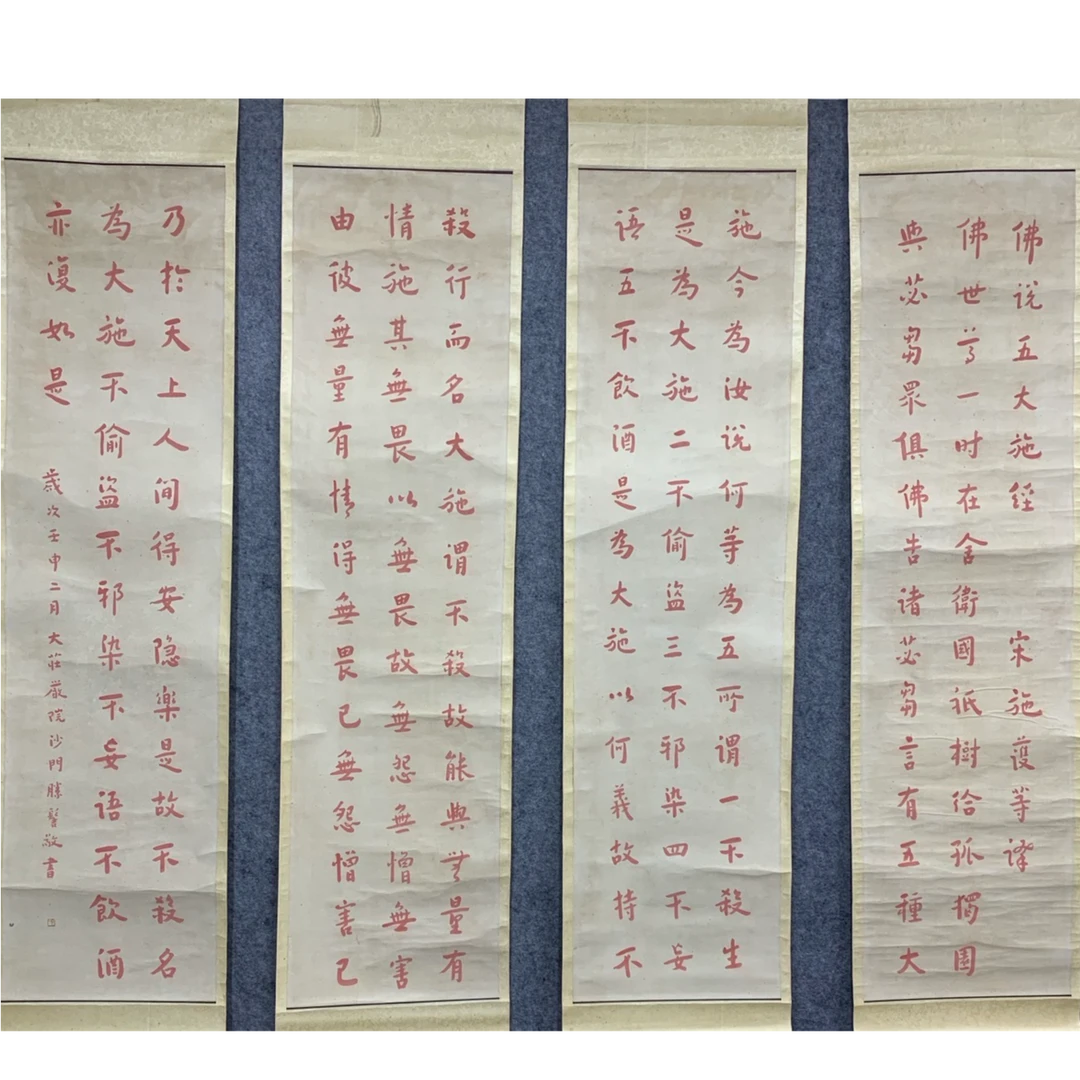 佛说五大施经 宋施護等譯
佛世尊一时在舍衛國祇樹给孤獨園
與苾芻眾俱佛告诸苾芻言有五種大
施今為汝说何等為五所谓一不殺生
是為大施二不偷盜三不邪染四不妄
语五不飲酒是為大施以何義故持不
殺行而名大施谓不殺故能與無量有
情施其無畏以無畏故無怨無憎無害
由彼無量有情得無畏已無怨憎害已
乃於天上人间得安隐樂是故不殺名
為大施不偷盜不邪染不妄语不飲酒
亦復如是
歲次壬申二月大莊嚴院沙門勝髻敬書